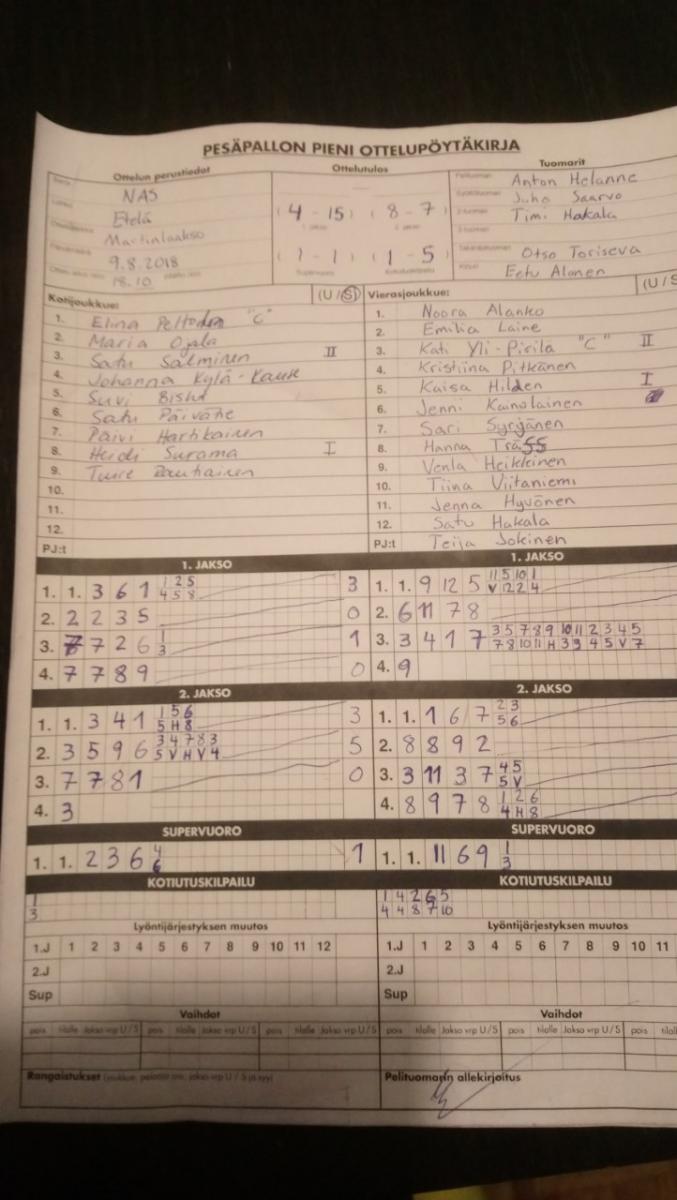 PESÄPALLON PIENI OTTELUPÖYTÄKIRJA
Ottelun perustiedot Ottelutulos Tuomarit
NAS
Etelä
Martinlaakso
9.8.2018
18.10
(4 - 15) (8 - 7)
(1 - 1) (1 - 5)
Anton Helanne
Juho Saarvo
Timi Hakala
Otso Toriseva
Eetu Alanen
Kotijoukkue: (U / S)
1. Elina "C"
2. Maria Ojala
3. Satu Salminen II
4. Johanna Kylä-Kause
5. Suvi
6. Satu
7. Päivi Hartikainen
8. Heidi Surama I
9. Tuire Rautiainen
10.
11.
12.
PJ:t
Vierasjoukkue: (U / S
1. Noora Alanko
2. Emilia Laine
3. Kati Yli-Pirilä "C" II
4. Kristiina Pitkänen
5. Kaisa Hilden I
6. Jenni Kainolainen
7. Sari Syrjänen
8. Hanna
9. Venla Heikkinen
10. Tiina Viitaniemi
11. Jenna Hyvönen
12. Satu Hakala
PJ:t Teija Jokinen
1. JAKSO
1. 1. 3 6 1 1 2 5 3
4 5 8
2. 2 2 3 5 0
3. 7 2 6 1 1
3
4. 7 7 8 9 0
1. JAKSO
1. 1. 9 12 5 11 5 10 1
V 12 2 4
2. 6 11 7 8
3. 3 4 1 7 3 5 7 8 9 10 11 2 3 4 5
7 8 10 11 H 3 3 4 5 V 7
4. 9
2. JAKSO
1. 1. 3 4 1 1 5 6 3
5 H 8
2. 3 5 9 6 3 4 7 8 3 5
5 V H V 4
3. 7 7 8 1 0
4. 3
2. JAKSO
1. 1. 1 6 7 2 3
5 6
2. 8 8 9 2
3. 3 11 3 7 4 5
5 V
4. 8 9 7 8 1 2 6
4 H 8
SUPERVUORO
1. 1. 2 3 6 4 1
6
SUPERVUORO
1. 1. 11 6 9 1
3
KOTIUTUSKILPAILU
1
3
KOTIUTUSKILPAILU
1 4 2 6 5
4 4 8 7 10
Lyöntijärjestyksen muutos
1.J 1 2 3 4 5 6 7 8 9 10 11 12
2.J
Sup
Lyöntijärjestyksen muutos
1.J 1 2 3 4 5 6 7 8 9 10 11
2.J
Sup
Vaihdot
pois tilalle Jakso vrp U/S pois tilalle Jakso vrp U/S pois tilalle Jakso vrp U/S
Vaihdot
pois tilalle Jakso vrp U/S pois tilalle Jakso vrp U/S pois
Rangaistukset
Pelituomarin allekirjoitus